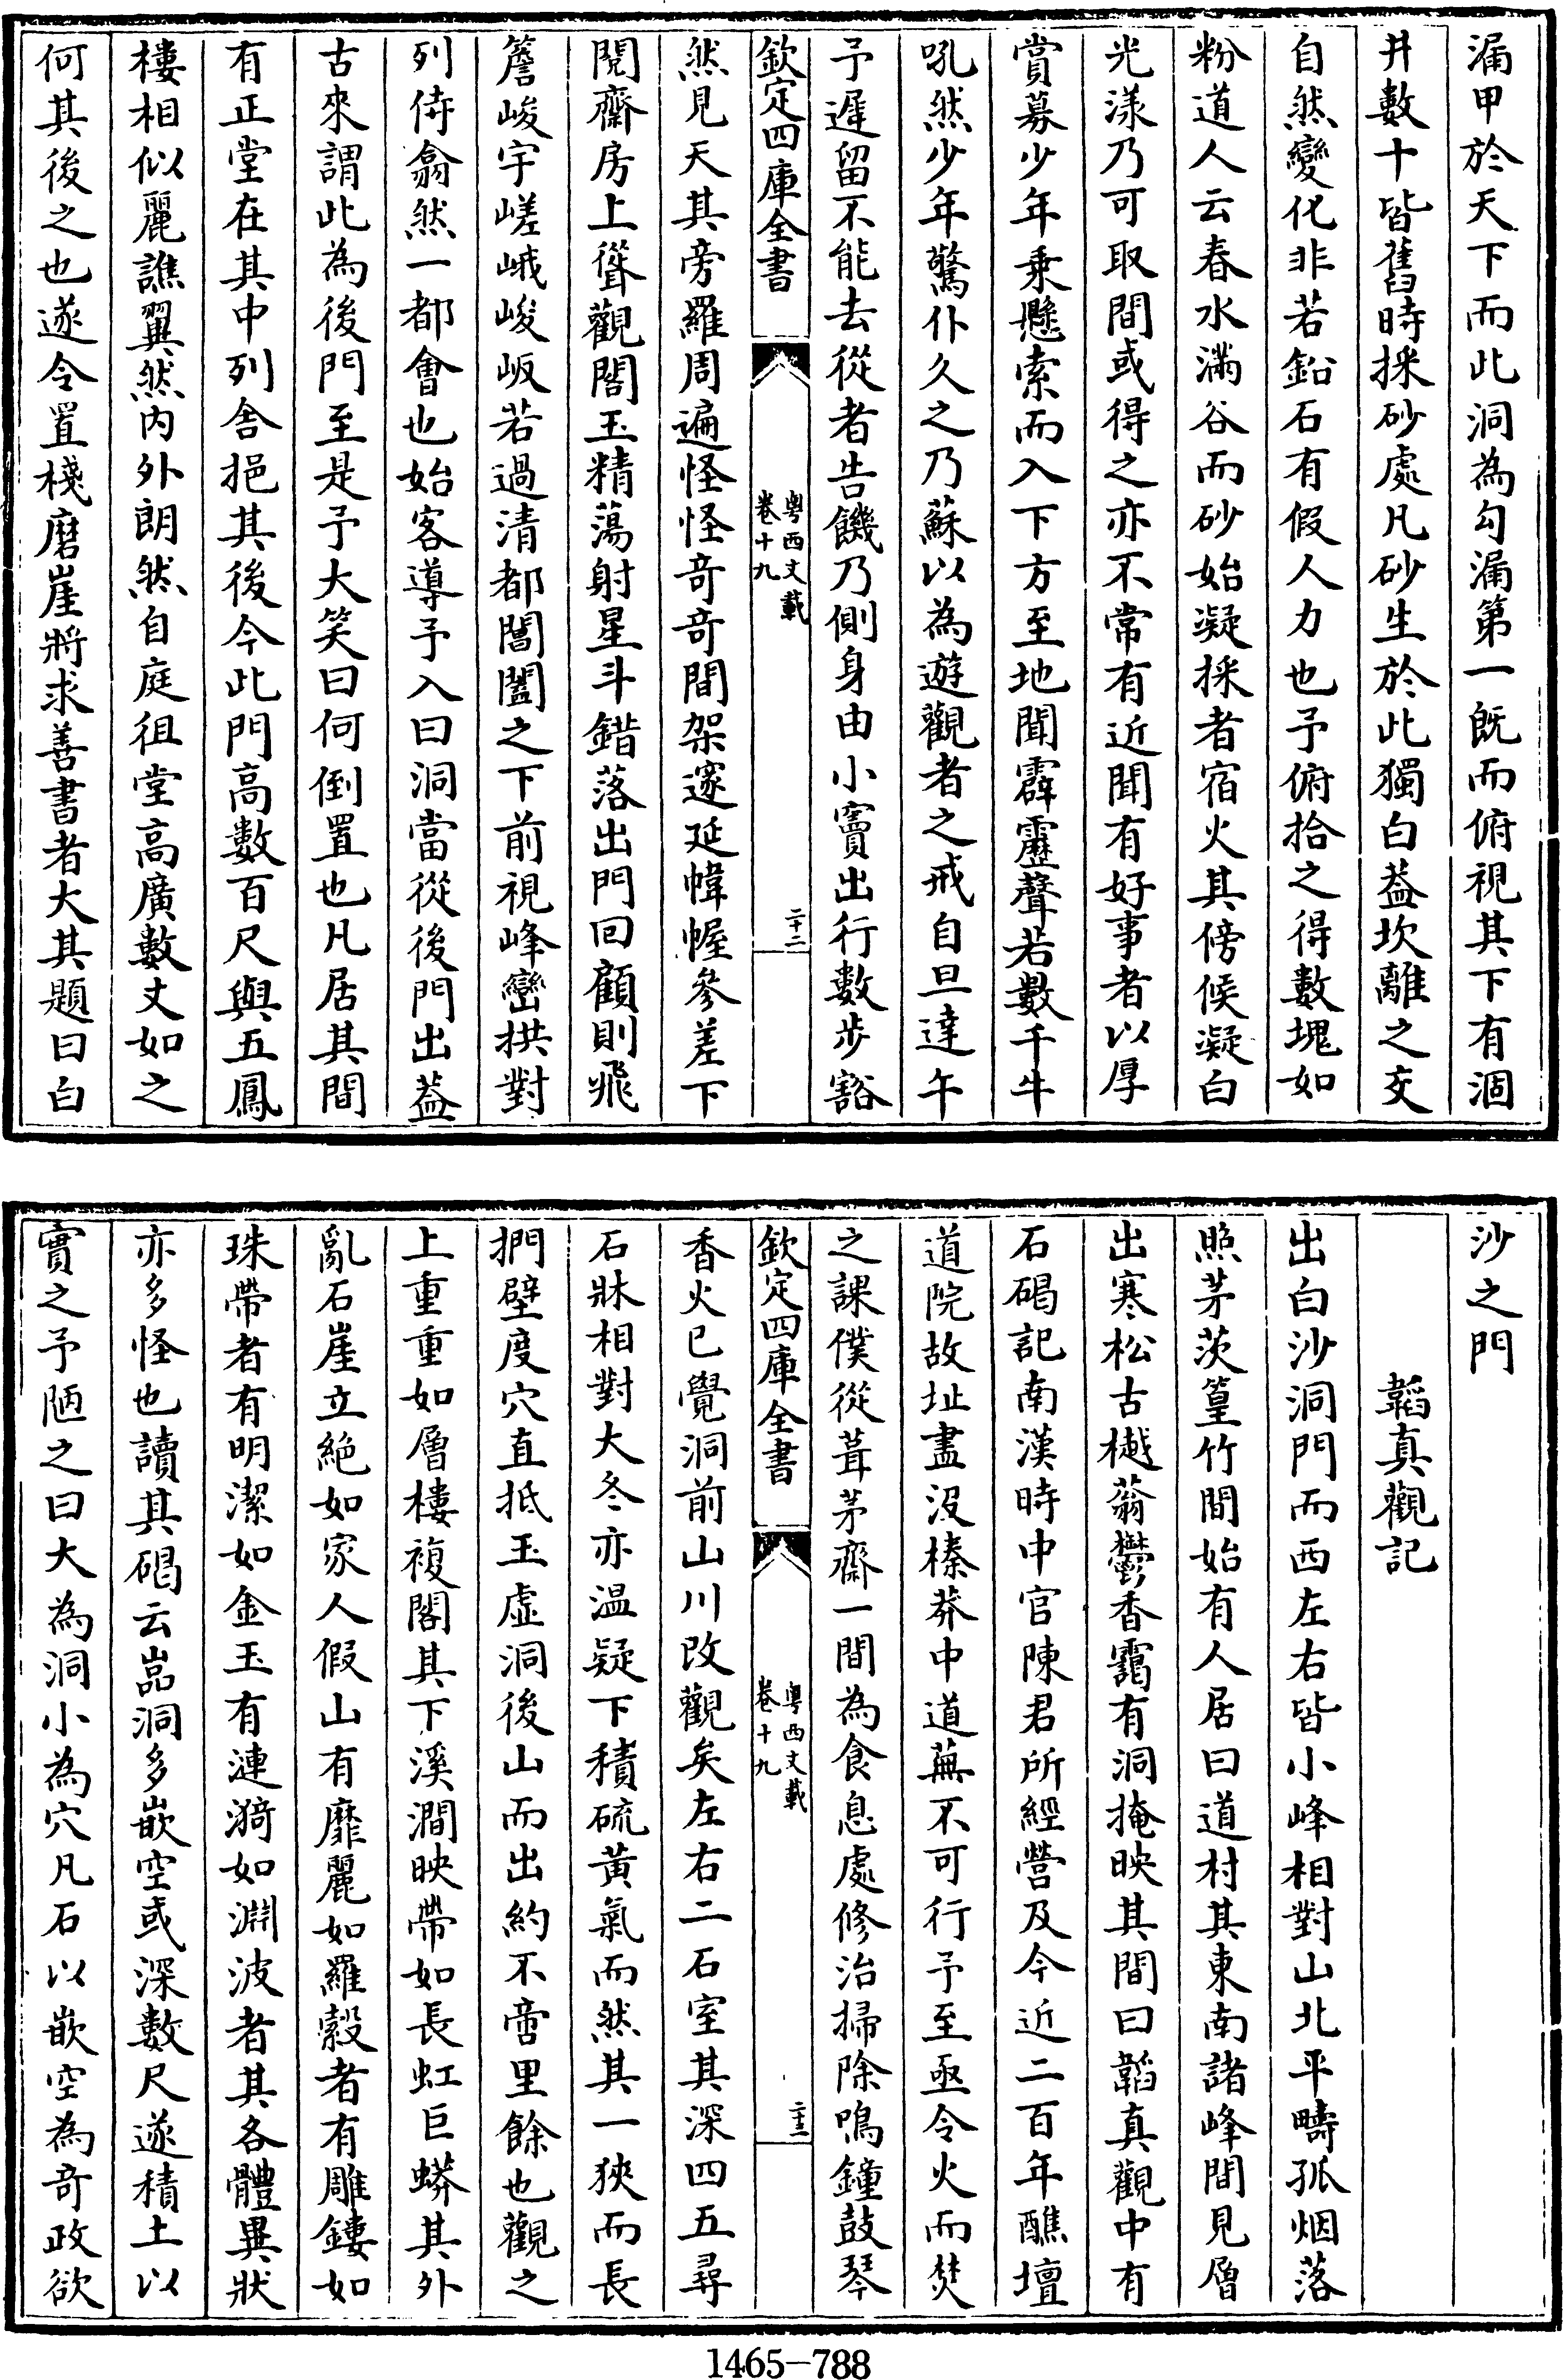 漏甲於天下而此洞為勾漏第一既而俯視其下有涸
井數十皆舊時採砂處凡砂生於此獨白葢坎離之交
自然變化非若鉛石有假人力也予俯拾之得數塊如
粉道人云春水滿谷而砂始凝採者宿火其傍候凝白
光漾乃可取間或得之亦不常有近聞有好事者以厚
賞募少年乗懸索而入下方至地聞霹靂聲若數千牛
吼然少年驚仆久之乃蘇以為遊觀者之戒自旦達午
予遲留不能去從者告饑乃側身由小竇出行數步豁
欽定四庫全書
粤西文載
卷十九
二十二
然見天其旁羅周遍怪怪奇奇間架邃延幃幄參差下
閱齋房上聳觀閣玉精蕩射星斗錯落出門回顧則飛
簷峻宇嵯峨峻岅若過清都閶闔之下前視峰巒拱對
列侍翕然一都會也始客導予入曰洞當從後門出葢
古來謂此為後門至是予大笑曰何倒置也凡居其間
有正堂在其中列舍挹其後今此門高數百尺與五鳳
樓相似麗譙翼然内外朗然自庭徂堂高廣數丈如之
何其後之也遂令置棧磨崖將求善書者大其題曰白
沙之門
韜真觀記
出白沙洞門而西左右皆小峰相對山北平疇孤烟落
照茅茨篁竹間始有人居曰道村其東南諸峰間見層
出寒松古樾蓊鬱香靄有洞掩映其間曰韜真觀中有
石碣記南漢時中官陳君所經營及今近二百年醮壇
道院故址盡沒榛莽中道蕪不可行予至亟令火而焚
之課僕從葺茅齋一間為食息處修治掃除鳴鐘鼓琴
欽定四庫全書
粤西文載
卷十九
二十三
香火已覺洞前山川改觀矣左右二石室其深四五尋
石牀相對大冬亦温疑下積硫黄氣而然其一狹而長
捫壁度穴直抵玉虛洞後山而出約不啻里餘也觀之
上重重如層樓複閣其下溪澗映帶如長虹巨蟒其外
亂石崖立絶如家人假山有靡麗如羅縠者有雕鏤如
珠帶者有明潔如金玉有漣漪如淵波者其各體異狀
亦多怪也讀其碣云嵓洞多嵌空或深數尺遂積土以
實之予陋之曰大為洞小為穴凡石以嵌空為奇政欲
1465—788